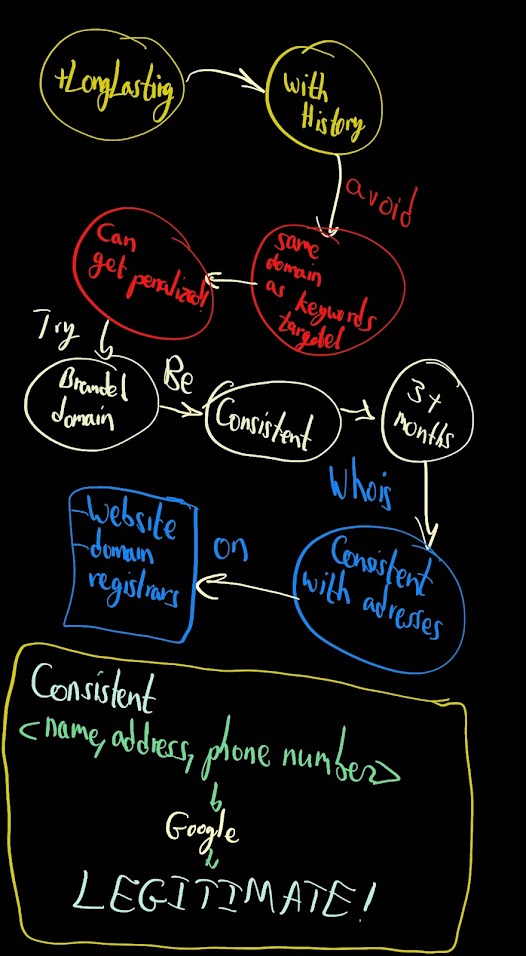 +LongLasting
with
History
avoid
same
domain
as keywords
targeted
Can
get penalized!
Try
Branded
domain
Be
Consistent
3+
months
Whois
Consistent
with adresses
on
-website
-domain
registrars
Consistent
<name, address, phone number>
Google
LEGITIMATE!